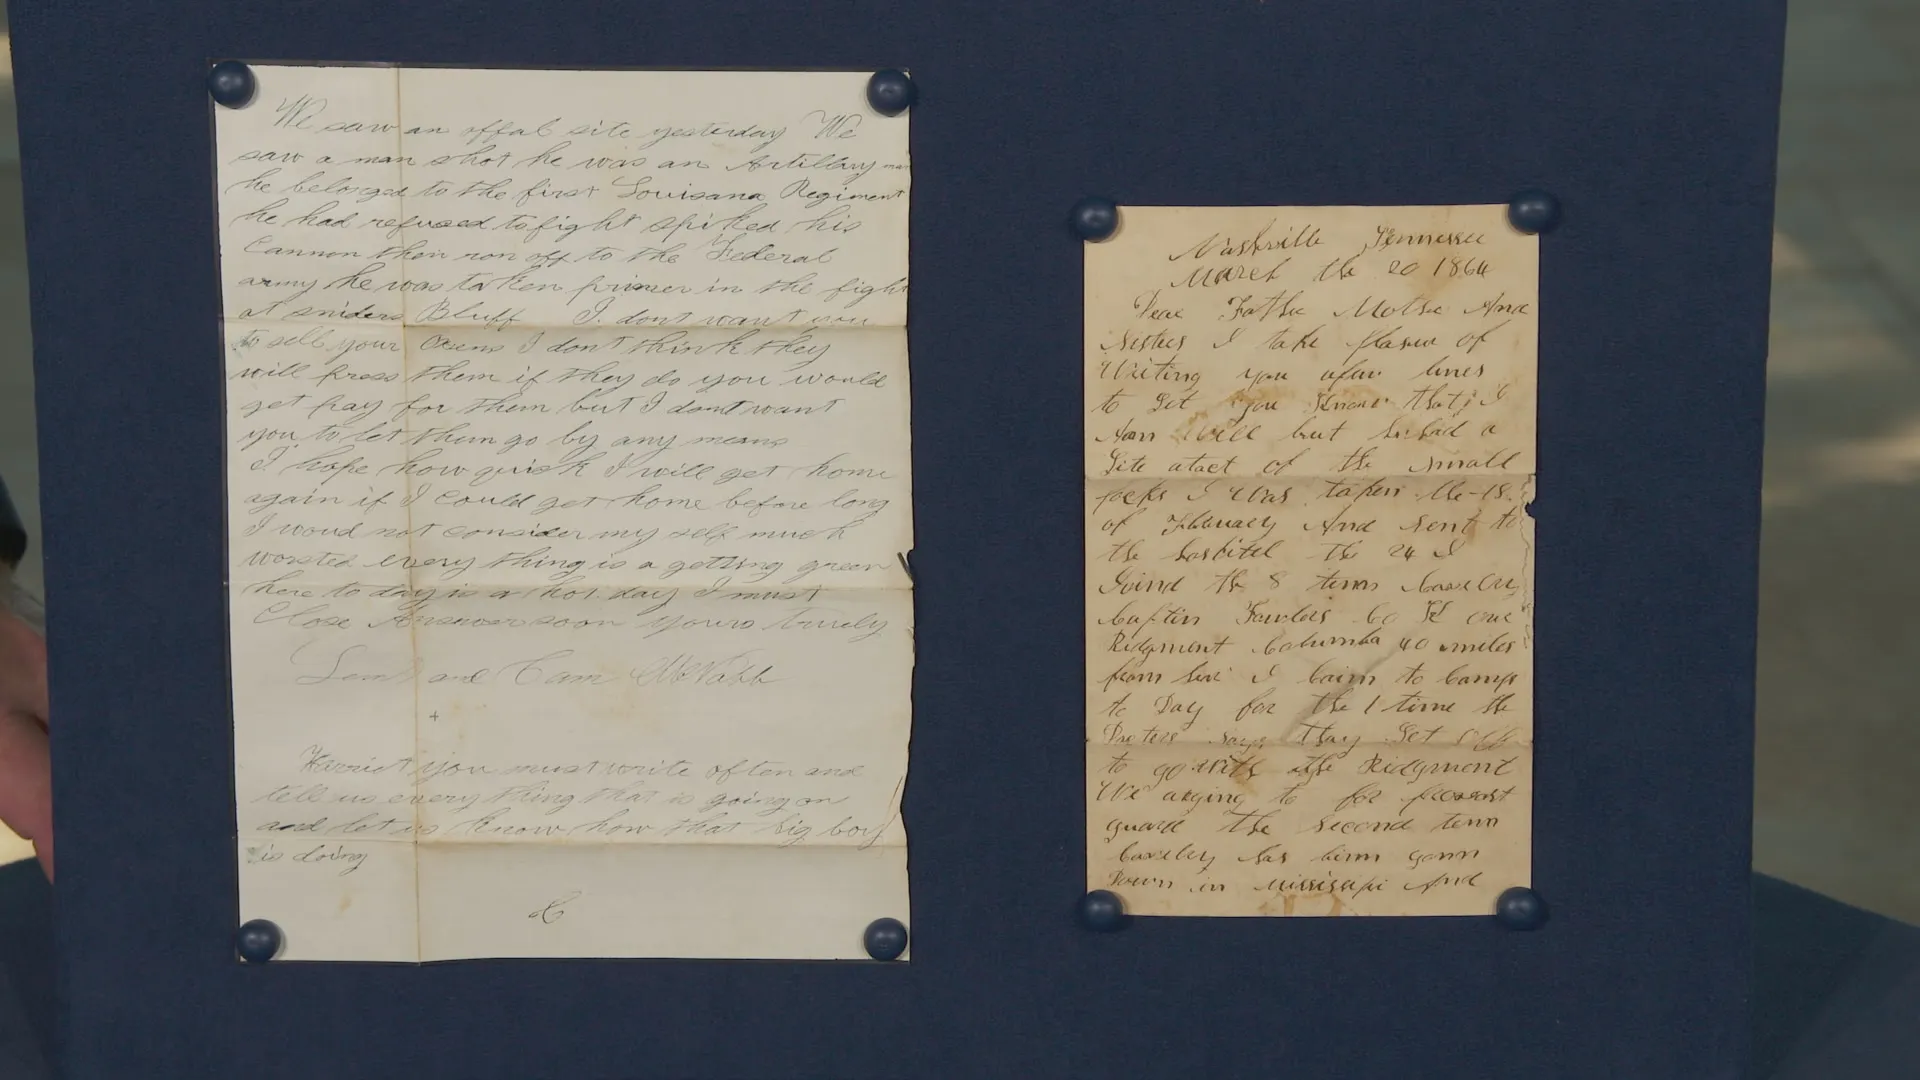 We saw an offal site yesterday We
saw a man shot he was an Artillery man
he belonged to the first Louisana Regiment
he had refused to fight spiked his
Cannon then ron off to the Federal
army he was taken prisner in the fight
at sniders Bluff I dont want you
to sell your Oxens I dont think they
will press them if they do you would
get pay for them but I dont want
you to let them go by any means
I hope how quick I will get home
again if I could get home before long
I woud not consider my self much
worsted every thing is a getting green
here to day is a hot day I must
Close Answer soon yours truely
and Cam McNabb
+
Harriet you must write often and
tell us every thing that is going on
and let us know how that big boy
is doing
Nashville Tennessee
March the 20 1864
Dear Father Mother And
Sisters I take plasure of
Writing you afew lines
to Let you Know that I
Am Well but had a
Lite atact of the small
pocks I Was taken the 18
of February And sent to
the hospitel the 24 I
Joind the 8 tenn
Captin Fowlers Co
Ridgment Columba 40 miles
from I baim to bamp
to Day for the 1 time the
Docters says thay Let
to go With the Ridgment
We arging to for provost
guard the second tenn
has binn gonn
Down in Mississipi And